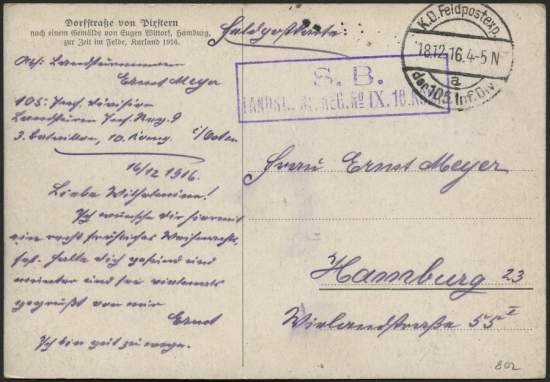 Dorfstraße von Pixtern
nach einem Gemälde von Eugen Wittork, Hamburg,
zur Zeit im Felde, Kurland 1916.
Abs: Landsturmmann
Ernst Meyer
105. Inf. Division
Landsturm Inf. Reg. 9
3. Bataillon, 10. Komp. i/Osten
16/12 1916.
Liebe Wilhelmine!
Ich wünsche Dir hiermit
ein recht fröhliches Weihnachts-
fest. Halte Dich gesund und
munter und sei vielmals
gegrüßt von mir
Ernst
Ich bin gut zu wege.
Feldpostkarte.
S. B.
LANDST. REG. No IX. 10.
K.D. Feldpostexp.
18.12.16. 4-5 N
a
der 105. Inf. Div.
Frau Ernst Meyer
Hamburg 23
Wielandstraße 55 I
802